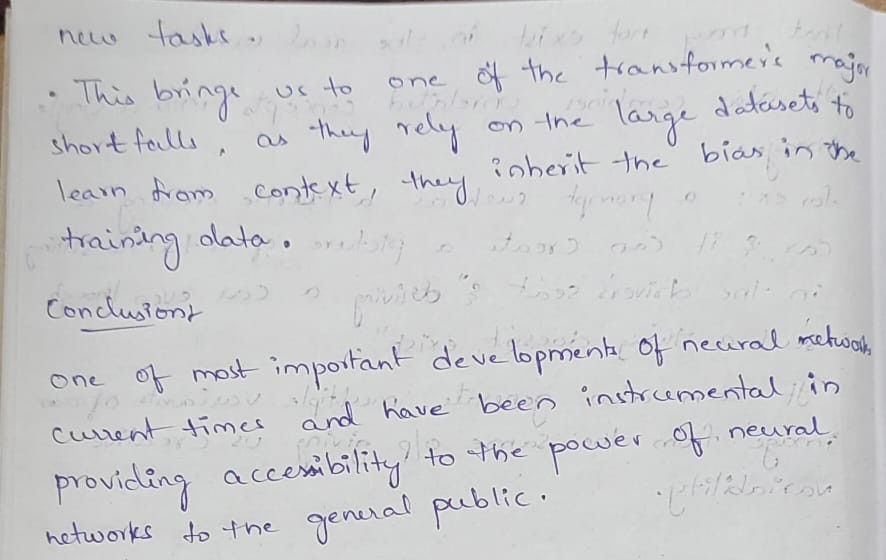 new tasks.
• This brings us to one of the transformer's major
short falls, as they rely on the large datasets to
learn from context, they inherit the bias in the
training data.
Conclusion:
one of most important developments of neural network
current times and have been instrumental in
providing accessibility to the power of neural
networks to the general public.